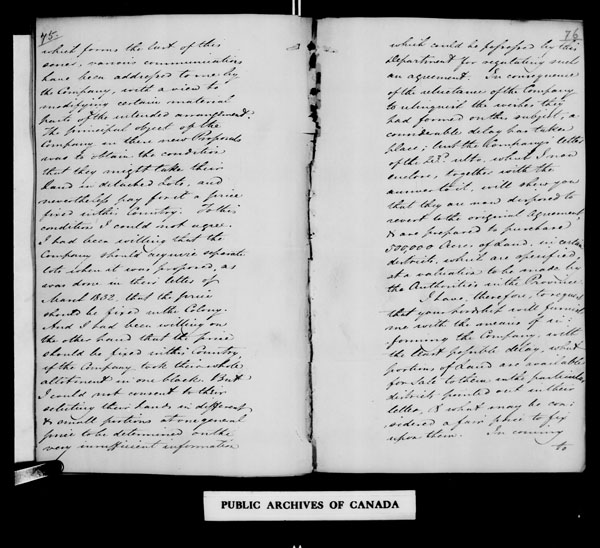 75.
which forms the last of this
series, various communications
have been addressed to me by
the Company, with a view to
modifying certain material
parts of the intended arrangement.
The principal object of the
Company in these new Proposals
was to obtain the condition
that they might take their
Land in detached Lots, and
nevertheless pay for it a price
fixed in this Country. To this
condition I could not agree.
I had been willing that the
Company should acquire separate
lots when it was proposed, as
was done in their letter of
March 1832, that the price
should be fixed in the Colony.
And I had been willing on
the other hand that the price
should be fixed in this Country,
if the Company took their whole
allotment in one block. But
I could not consent to their
selecting their Lands in different
& small portions at one general
price to be determined on the
very insufficient information
76
which could be possessed by this
Department for regulating such
an agreement. In consequence
of the reluctance of the Company
to relinquish the wishes they
had formed on the subject, a
considerable delay has taken
place; but the Company's letter
of the 23d. ulto. which I now
enclose, together with the
answer to it, will show you
that they are now disposed to
revert to the original Agreement,
& are prepared to purchase
500,000 Acres of Land, in certain
districts, which are specified,
at a valuation to be made by
the Authorities in the Province.
I have, therefore, to request
that your Lordship will furnish
me with the means of in-
forming the Company, with
the least possible delay, what
portions of Land are available
for Sale to them in the particular
districts pointed out in their
letter, & what may be con-
sidered a fair price to fix
upon them. In coming
to
PUBLIC ARCHIVES OF CANADA